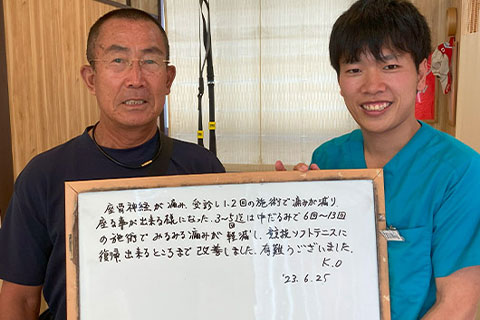 座骨神経が痛み、受診し1、2回の施術で痛みが減り、
座る事が出来る様になった。3〜5回迄は中だるみで6回〜13回
の施術でみるみる痛みが軽減し、競技ソフトテニスに
復帰出来るところまで改善しました。有難うございました。
K.O
'23.6.25